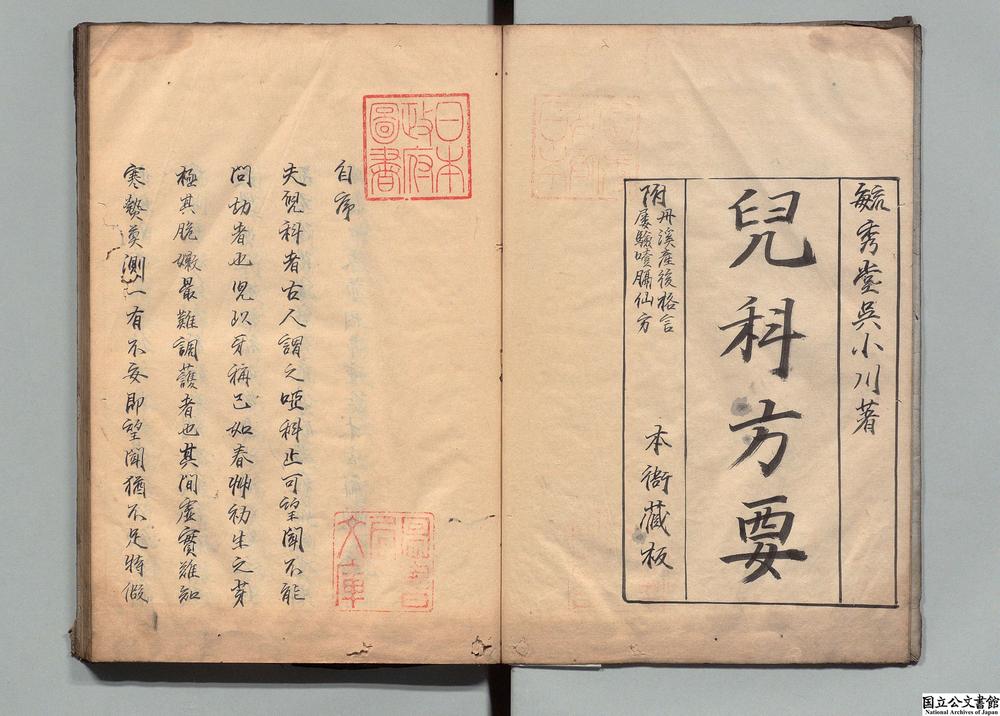 毓秀堂吳小川著
兒科方要
附丹溪產後格言
屢驗噴膈仙方
本衙藏板
日本
政府
圖書
自序
夫兒科者古人謂之啞科止可望聞不能
問切者也兒以牙稱已如春艸初生之芽
極其脆嫩最難調護者也其間虛實難知
寒熱莫測一有不妥即望聞猶不足恃倘
文庫
国立公文書館
National Archives of Japan